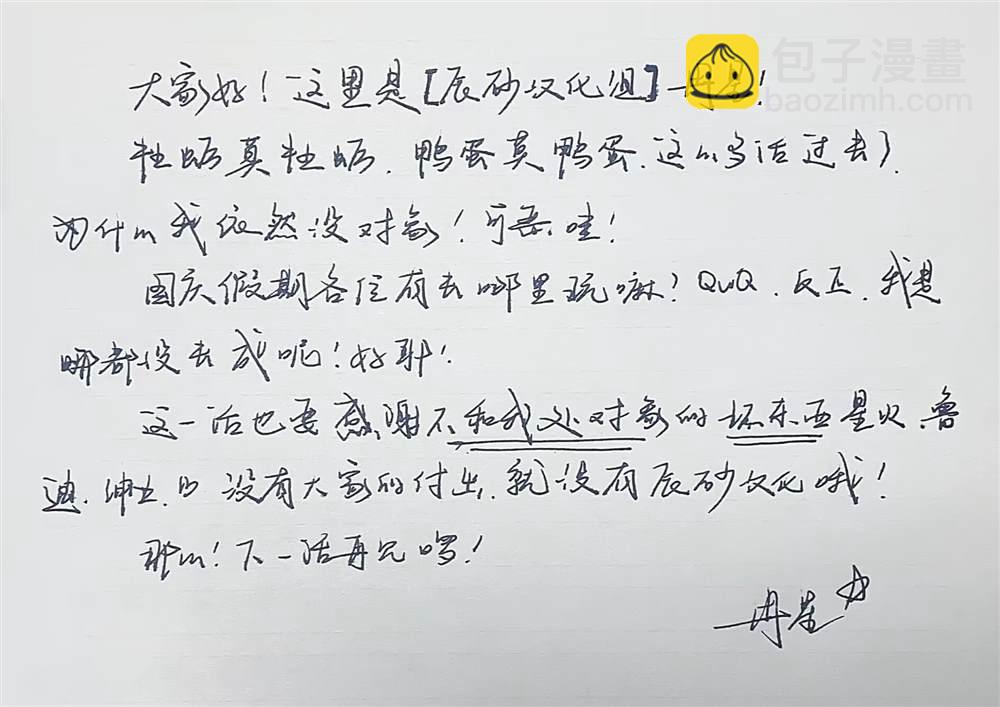 包子漫畫
baozimh.com
大家好！这里是[辰砂汉化组]
牡蛎莫牡蛎，鸭蛋莫鸭蛋，这么多话过去了，
为什么我依然没对象！可恶哇！
国庆假期各位有去哪里玩嘛？QwQ，反正，我是
哪都没去成呢！好耶！
这一话也要感谢不和我处对象的坏东西星火、鲁
迪、绅士、B 没有大家的付出，就没有辰砂汉化哦！
那么！下一话再见啰！